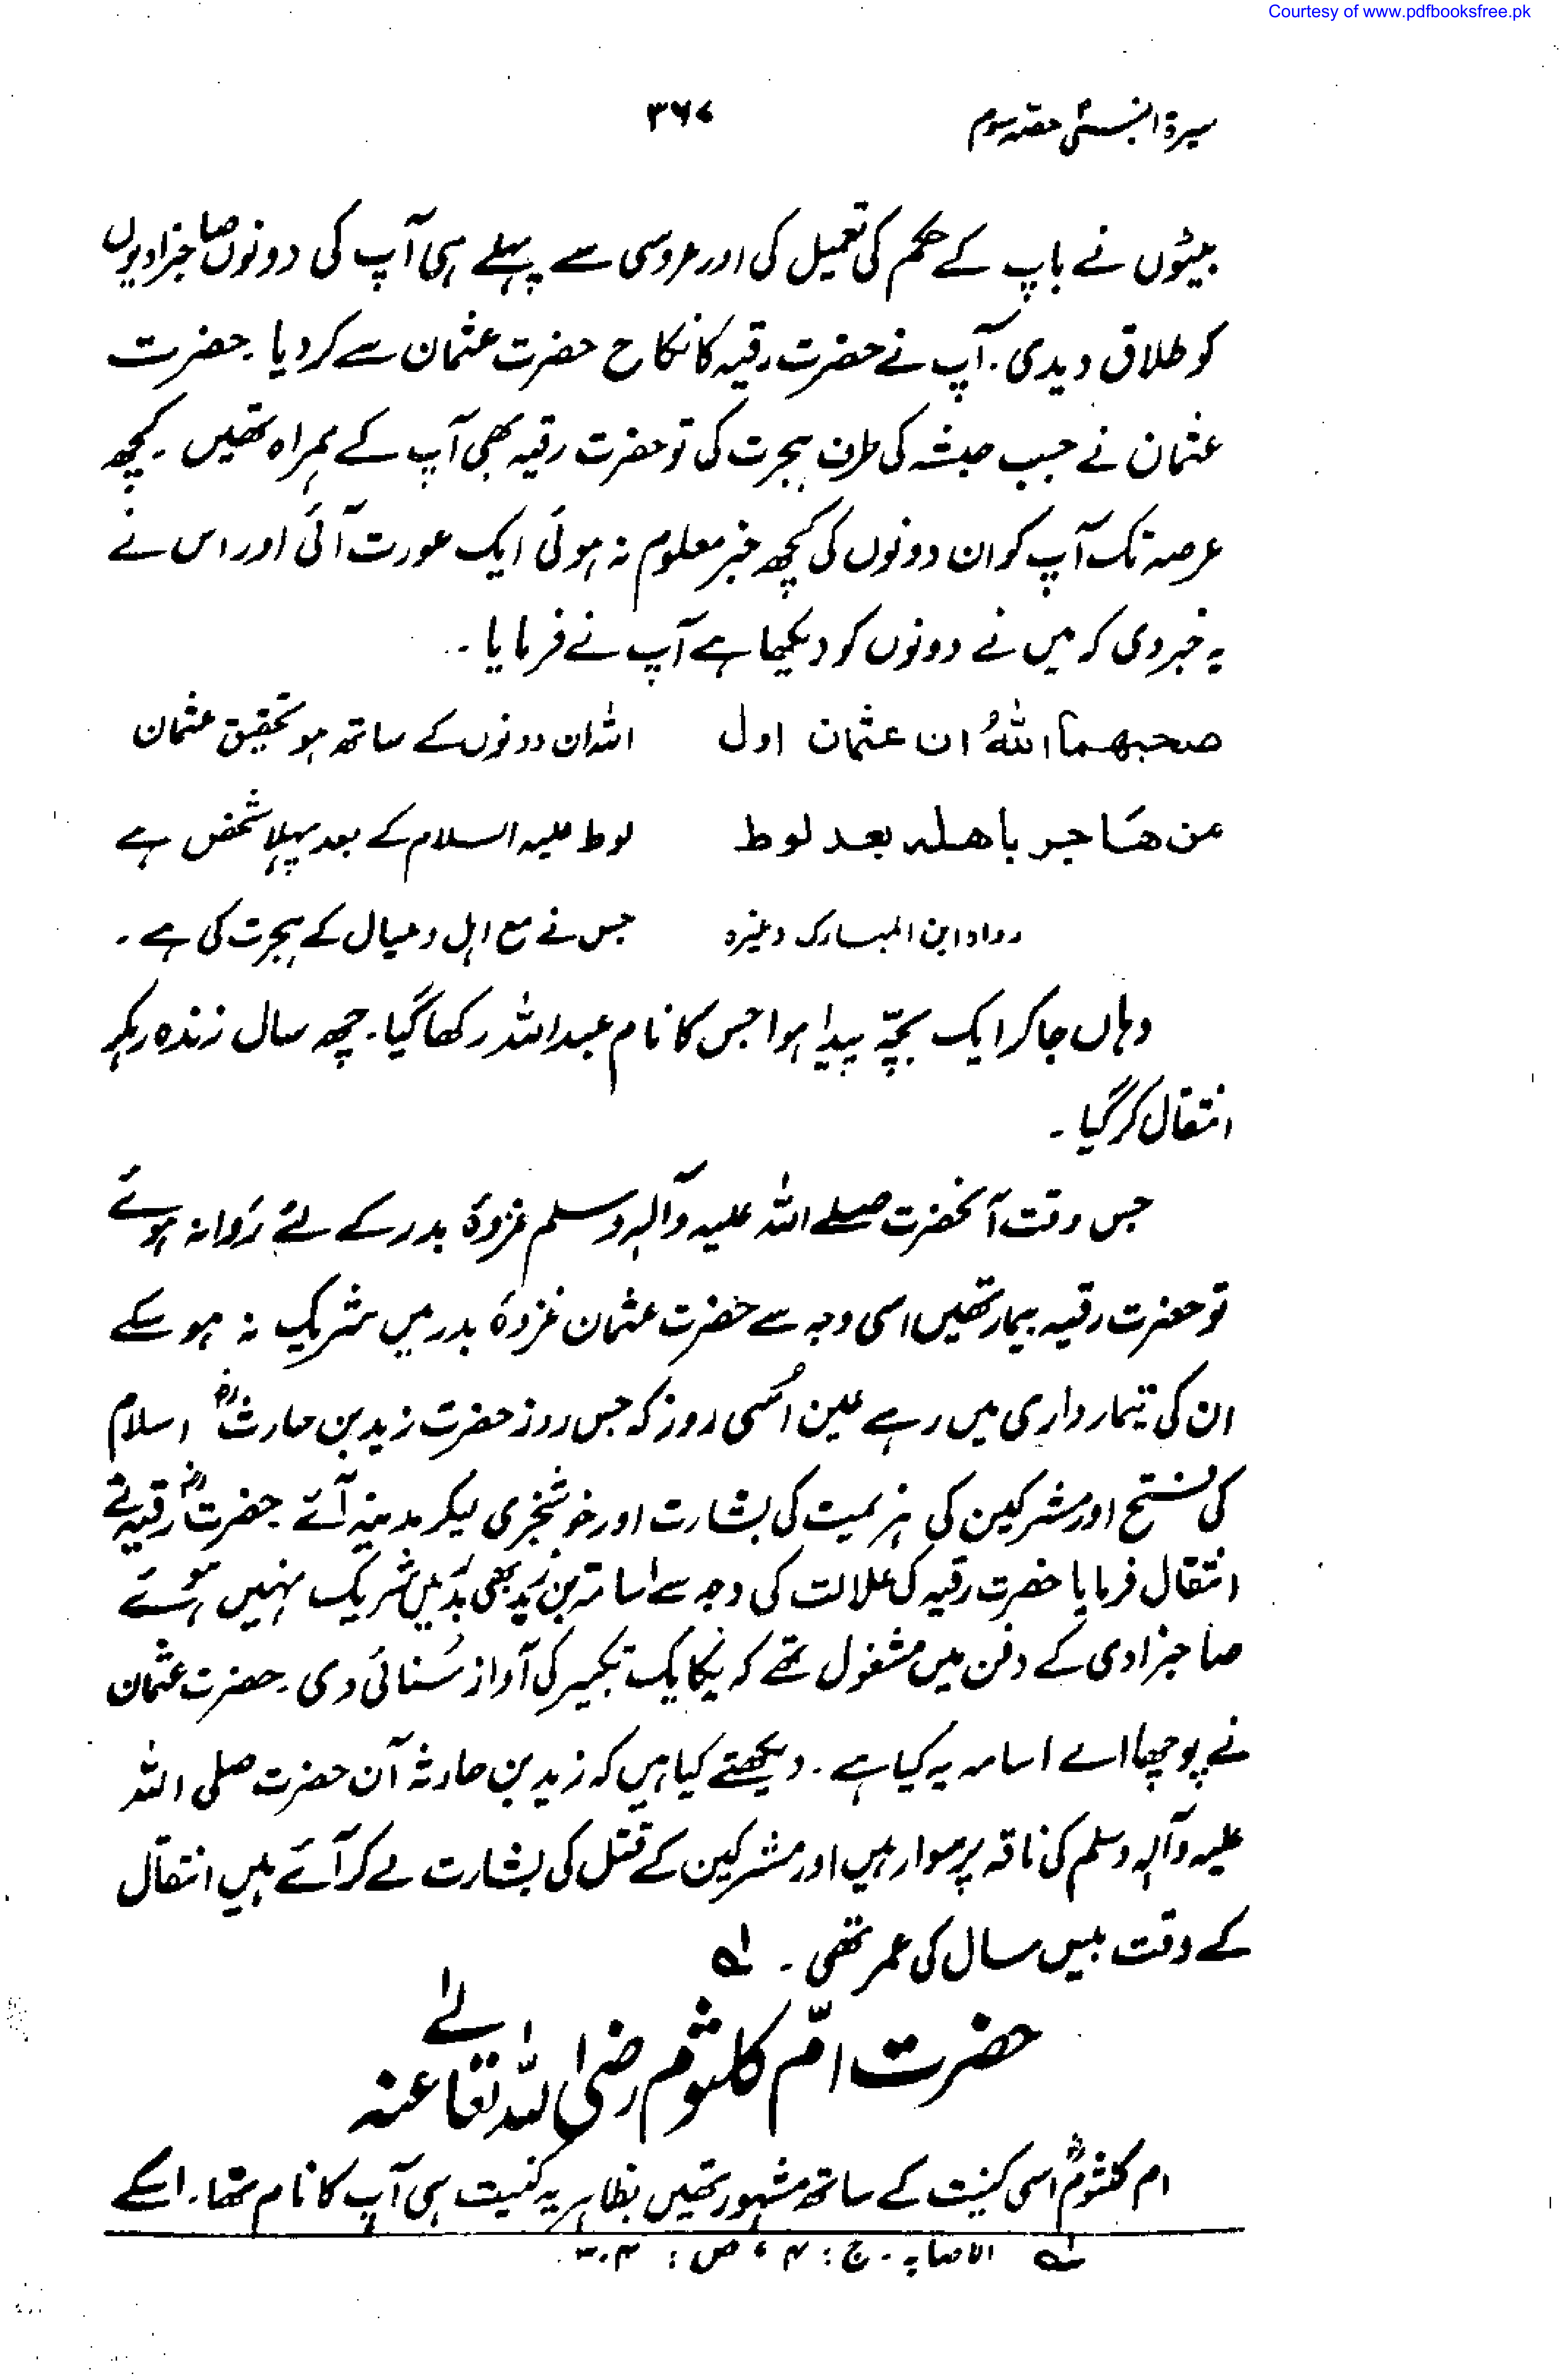 Courtesy of www.pdfbooksfree.pk
سیرۃ النبی حصہ سوم
۳۶۷
بیٹوں نے باپ کے حکم کی تعمیل کی اور عروسی سے پہلے ہی آپ کی دونوں صاحبزادیوں
کو طلاق دیدی۔ آپ نے حضرت رقیہ کا نکاح حضرت عثمان سے کر دیا۔ حضرت
عثمان نے جب حبشہ کی طرف ہجرت کی تو حضرت رقیہ بھی آپ کے ہمراہ تھیں۔ کچھ
عرصہ تک آپ کو ان دونوں کی کچھ خبر معلوم نہ ہوئی ایک عورت آئی اور اس نے
یہ خبر دی کہ میں نے دونوں کو دیکھا ہے آپ نے فرمایا۔
صحبهما اللهُ ان عثمان اول
من هَاجر باهله بعد لوط
رواہ ابن المبارک وغیرہ
اللہ ان دونوں کے ساتھ ہو تحقیق عثمان
لوط علیہ السلام کے بعد پہلا شخص ہے
جس نے مع اہل و عیال کے ہجرت کی ہے۔
وہاں جا کر ایک بچّہ پیدا ہوا جس کا نام عبداللہ رکھا گیا۔ چھ سال زندہ رہکر
انتقال کر گیا۔
جس وقت آنحضرت صلے اللہ علیہ وآلہ وسلم غزوۂ بدر کے لئے روانہ ہوئے
تو حضرت رقیہ بیمار تھیں اسی وجہ سے حضرت عثمان غزوۂ بدر میں شریک نہ ہو سکے
ان کی تیمارداری میں رہے عین اُسی روز کہ جس روز حضرت زید بن حارثؓ اسلام
کی فتح اور مشرکین کی ہزیمیت کی بشارت اور خوشخبری لیکر مدینہ آئے حضرتؓ رقیہ نے
انتقال فرمایا حضرت رقیہ کی علالت کی وجہ سے اسامۃ بن زید بھی بدر میں شریک نہیں ہوئے
صاحبزادی کے دفن میں مشغول تھے کہ یکایک تکبیر کی آواز سُنائی دی۔ حضرت عثمان
نے پوچھا اے اسامہ یہ کیا ہے۔ دیکھتے کیا ہیں کہ زید بن حارثہ آن حضرت صلی اللہ
علیہ وآلہ وسلم کی ناقہ پر سوار ہیں اور مشرکین کے قتل کی بشارت لے کر آئے ہیں انتقال
کے وقت بیس سال کی عمر تھی۔ لہ
حضرت امّ کلثوم رضی اللہ تعالےٰ عنہ
ام کلثومؓ اسی کنیت کے ساتھ مشہور تھیں بظاہر یہ کنیت ہی آپ کا نام تھا۔ اسکے
لہ الاصابہ۔ ج: ۴، ص: